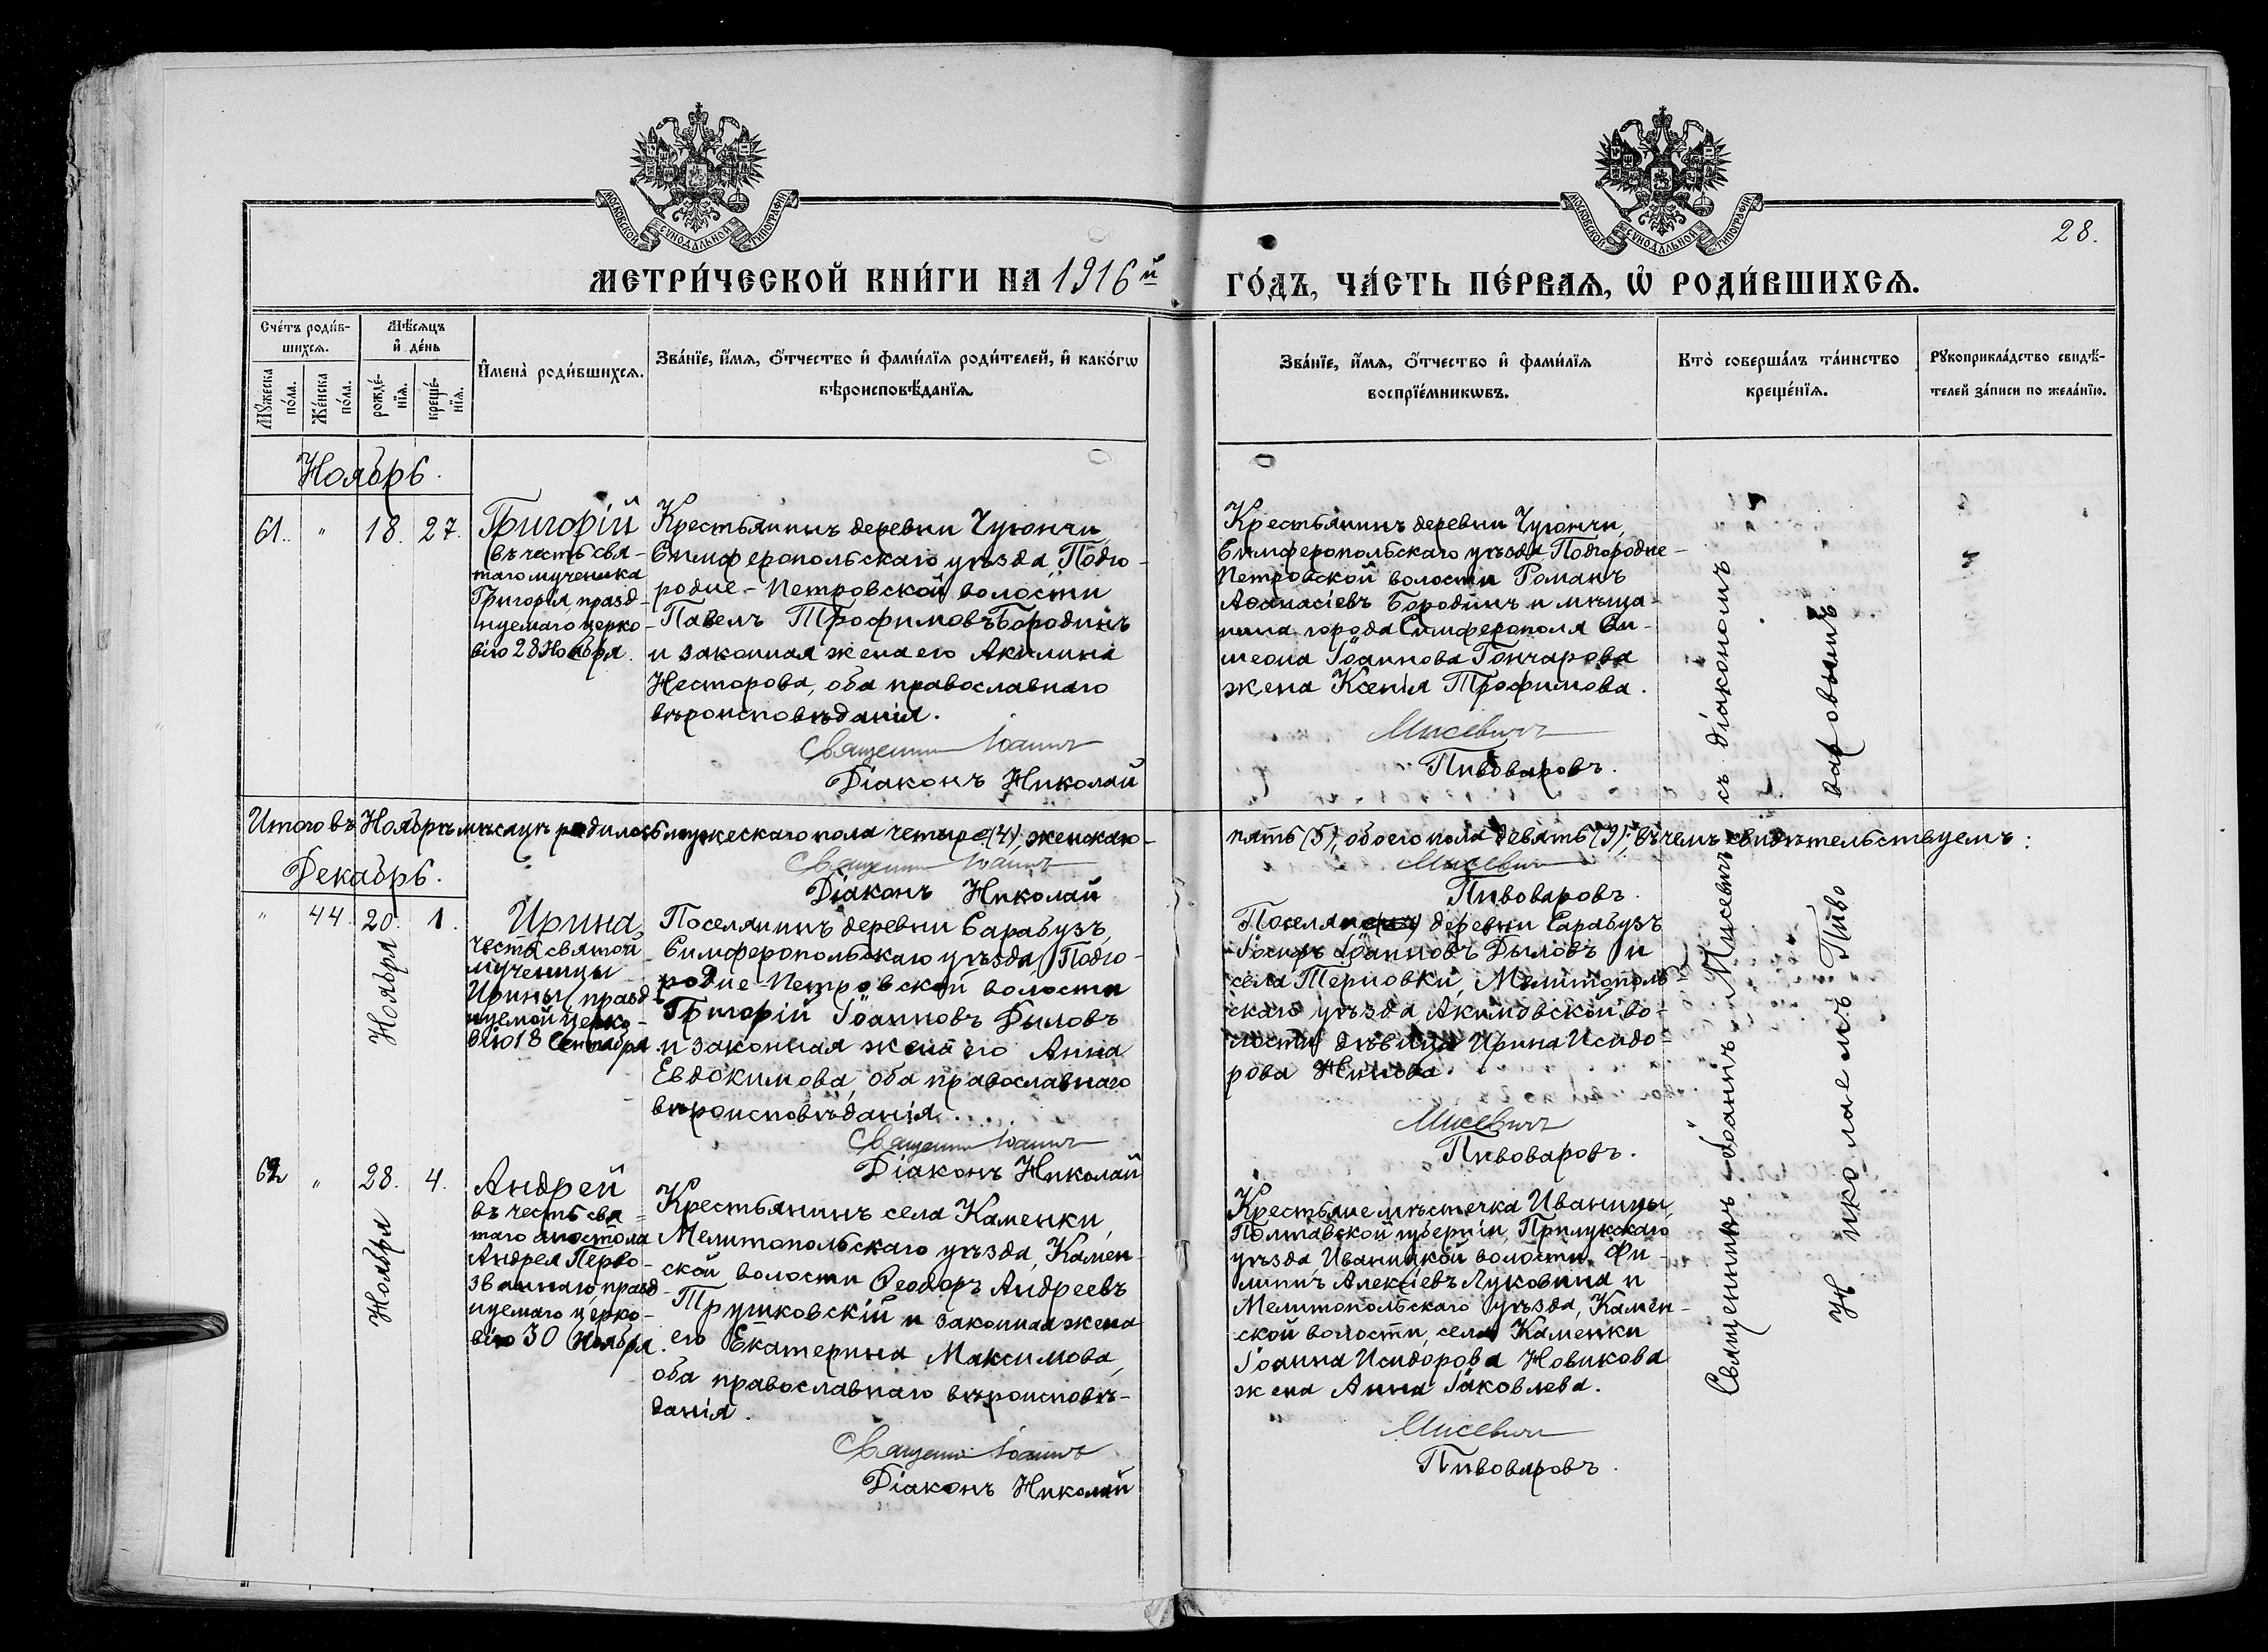 МОСКОВСКОЙ СѴНОДАЛЬНОЙ ТИПОГРАФІИ
МОСКОВСКОЙ СѴНОДАЛЬНОЙ ТИПОГРАФІИ
28.
МЕТРИ́ЧЕСКОЙ КНИ́ГИ НА 1916й
ГО́ДЪ, ЧА́СТЬ ПЕ́РВАѦ, Ѡ҆ РОДИ́ВШИХСѦ.
Сче́тъ роди́в-
шихсѧ.
Мѣ́сѧцъ
и҆ де́нь
Мꙋ́жеска
по́ла.
Же́нска
по́ла.
рожде́-
нїѧ.
креще́-
нїѧ.
И҆мена̀ роди́вшихсѧ.
Зва́нїе, и҆́мѧ, ѻ҆́тчество и҆ фами́лїѧ роди́телей, и҆ како́гѡ
вѣроисповѣ́данїѧ.
Зва́нїе, и҆́мѧ, ѻ҆́тчество и҆ фами́лїѧ
воспрїе́мникѡвъ.
Кто̀ соверша́лъ та́инство
креще́нїѧ.
Рꙋкоприкла́дство свидѣ́-
телей за́писи по жела́нїю.
Ноябрь.
61. " 18. 27.
Григорій
въ честь свя-
таго мученика
Григорія, празд-
нуемаго церко-
вію 28 Ноября.
Крестьянинъ деревни Чуюнчи,
Симферопольскаго уѣзда, Подго-
родне-Петровской волости
Павелъ Трофимовъ Бородинъ
и законная жена его Акилина
Несторова, оба православнаго
вѣроисповѣданія.
Священникъ Іоаннъ
Діаконъ Николай
Крестьянинъ деревни Чуюнчи,
Симферопольскаго уѣзда Подгородне-
Петровской волости Романъ
Аѳанасіевъ Бородинъ и мѣща-
нина города Симферополя Си-
меона Іоаннова Гончарова
жена Ксенія Трофимова.
Мисевичъ
Пивоваровъ.
Итого въ Ноябрѣ мѣсяцѣ родилось мужескаго пола четыре (4), женскаго-
пять (5), обоего пола девять (9); въ чемъ свидѣтельствуемъ:
Священникъ Іоаннъ
Мисевичъ
Діаконъ Николай
Пивоваровъ.
Декабрь.
" 44. 20. 1.
Ноября
Ирина, въ
честь святой
мученицы
Ирины, празд-
нуемой церко-
вію 18 Сентября.
Поселянинъ деревни Сарабузъ,
Симферопольскаго уѣзда, Подго-
родне-Петровской волости
Григорій Іоанновъ Дыловъ
и законная жена его Анна
Евдокимова, оба православнаго
вѣроисповѣданія.
Священникъ Іоаннъ
Діаконъ Николай
деревни Сарабузъ
Іосифъ Іоанновъ Дыловъ и
села Терновки, Мелитополь-
скаго уѣзда, Акимовской во-
лости дѣвица Ирина Исидо-
рова
Мисевичъ
Пивоваровъ.
62 " 28. 4.
Ноября
Андрей
въ честь свя-
таго апостола
Андрея Перво-
званнаго, празд-
нуемаго церко-
вію 30 Ноября.
Крестьянинъ села Каменки,
Мелитопольскаго уѣзда, Камен-
ской волости Ѳеодоръ Андреевъ
Трушковскій и законная жена
его Екатерина Максимова,
оба православнаго вѣроисповѣ-
данія.
Священникъ Іоаннъ
Діаконъ Николай
Крестьяне мѣстечка Иваницы,
Полтавской губерніи, Прилукскаго
уѣзда Иваницкой волости Фи-
липпъ Алексіевъ Луковина и
Мелитопольскаго уѣзда, Камен-
ской волости, села Каменки
Іоанна Исидорова Новикова
жена Анна Іаковлева.
Мисевичъ
Пивоваровъ.
Священникъ Іоаннъ Мисевичъ съ діакономъ
Николаемъ Пивоваровымъ.